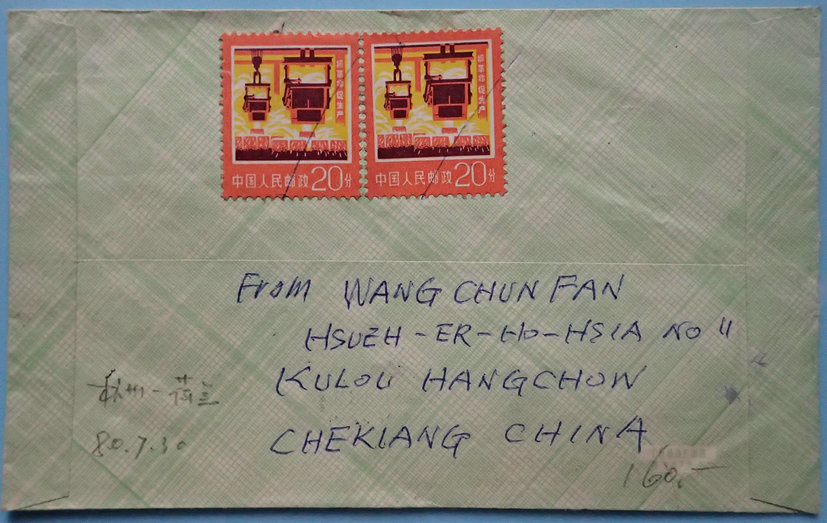 抓革命促生产
中国人民邮政 20分
抓革命促生产
中国人民邮政 20分
From WANG CHUN FAN
HSUEH-ER-HO-HSIA NO 11
KULOU HANGCHOW
CHEKIANG CHINA
杭州-荷兰
80.7.30
160,-